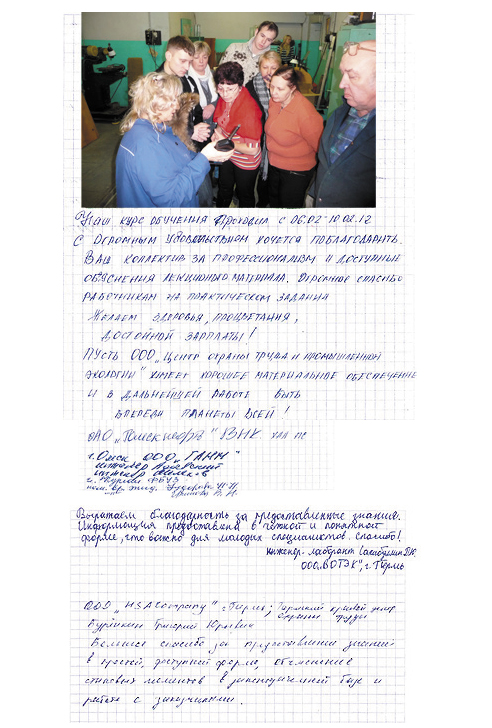 Наш курс обучения проходил с 06.02-10.02.12
С огромным удовольствием хочется поблагодарить.
Ваш коллектив за профессионализм и доступные
объяснения лекционного материала. Огромное спасибо
работникам за практическом задания
Желаем здоровья, процветания,
достойной зарплаты!
Пусть ООО „Центр охраны труда и промышленной
экологии" имеет хорошее материальное обеспечение
и в дальнейшей работе быть
впереди планеты всей!
ОАО „Томскнефть" ВНК
г. Омск ООО „ГАММ"
инженер
инженер
г. ФБУЗ
Выражаем благодарность за предоставленные знания.
Информация предоставлена в четкой и понятной
форме, что важно для молодых специалистов. Спасибо!
инженер-лаборант
ООО „ВОТЭК", г. Пермь
ООО „HSACompany" г. Пермь; Пермский краевой центр
охраны труда
Григорий Юрьевич
Большое спасибо за предоставление знаний
в краткой, доступной форме, объяснение
спиновых моментов в законодательной базе и
работе с заказчиками.